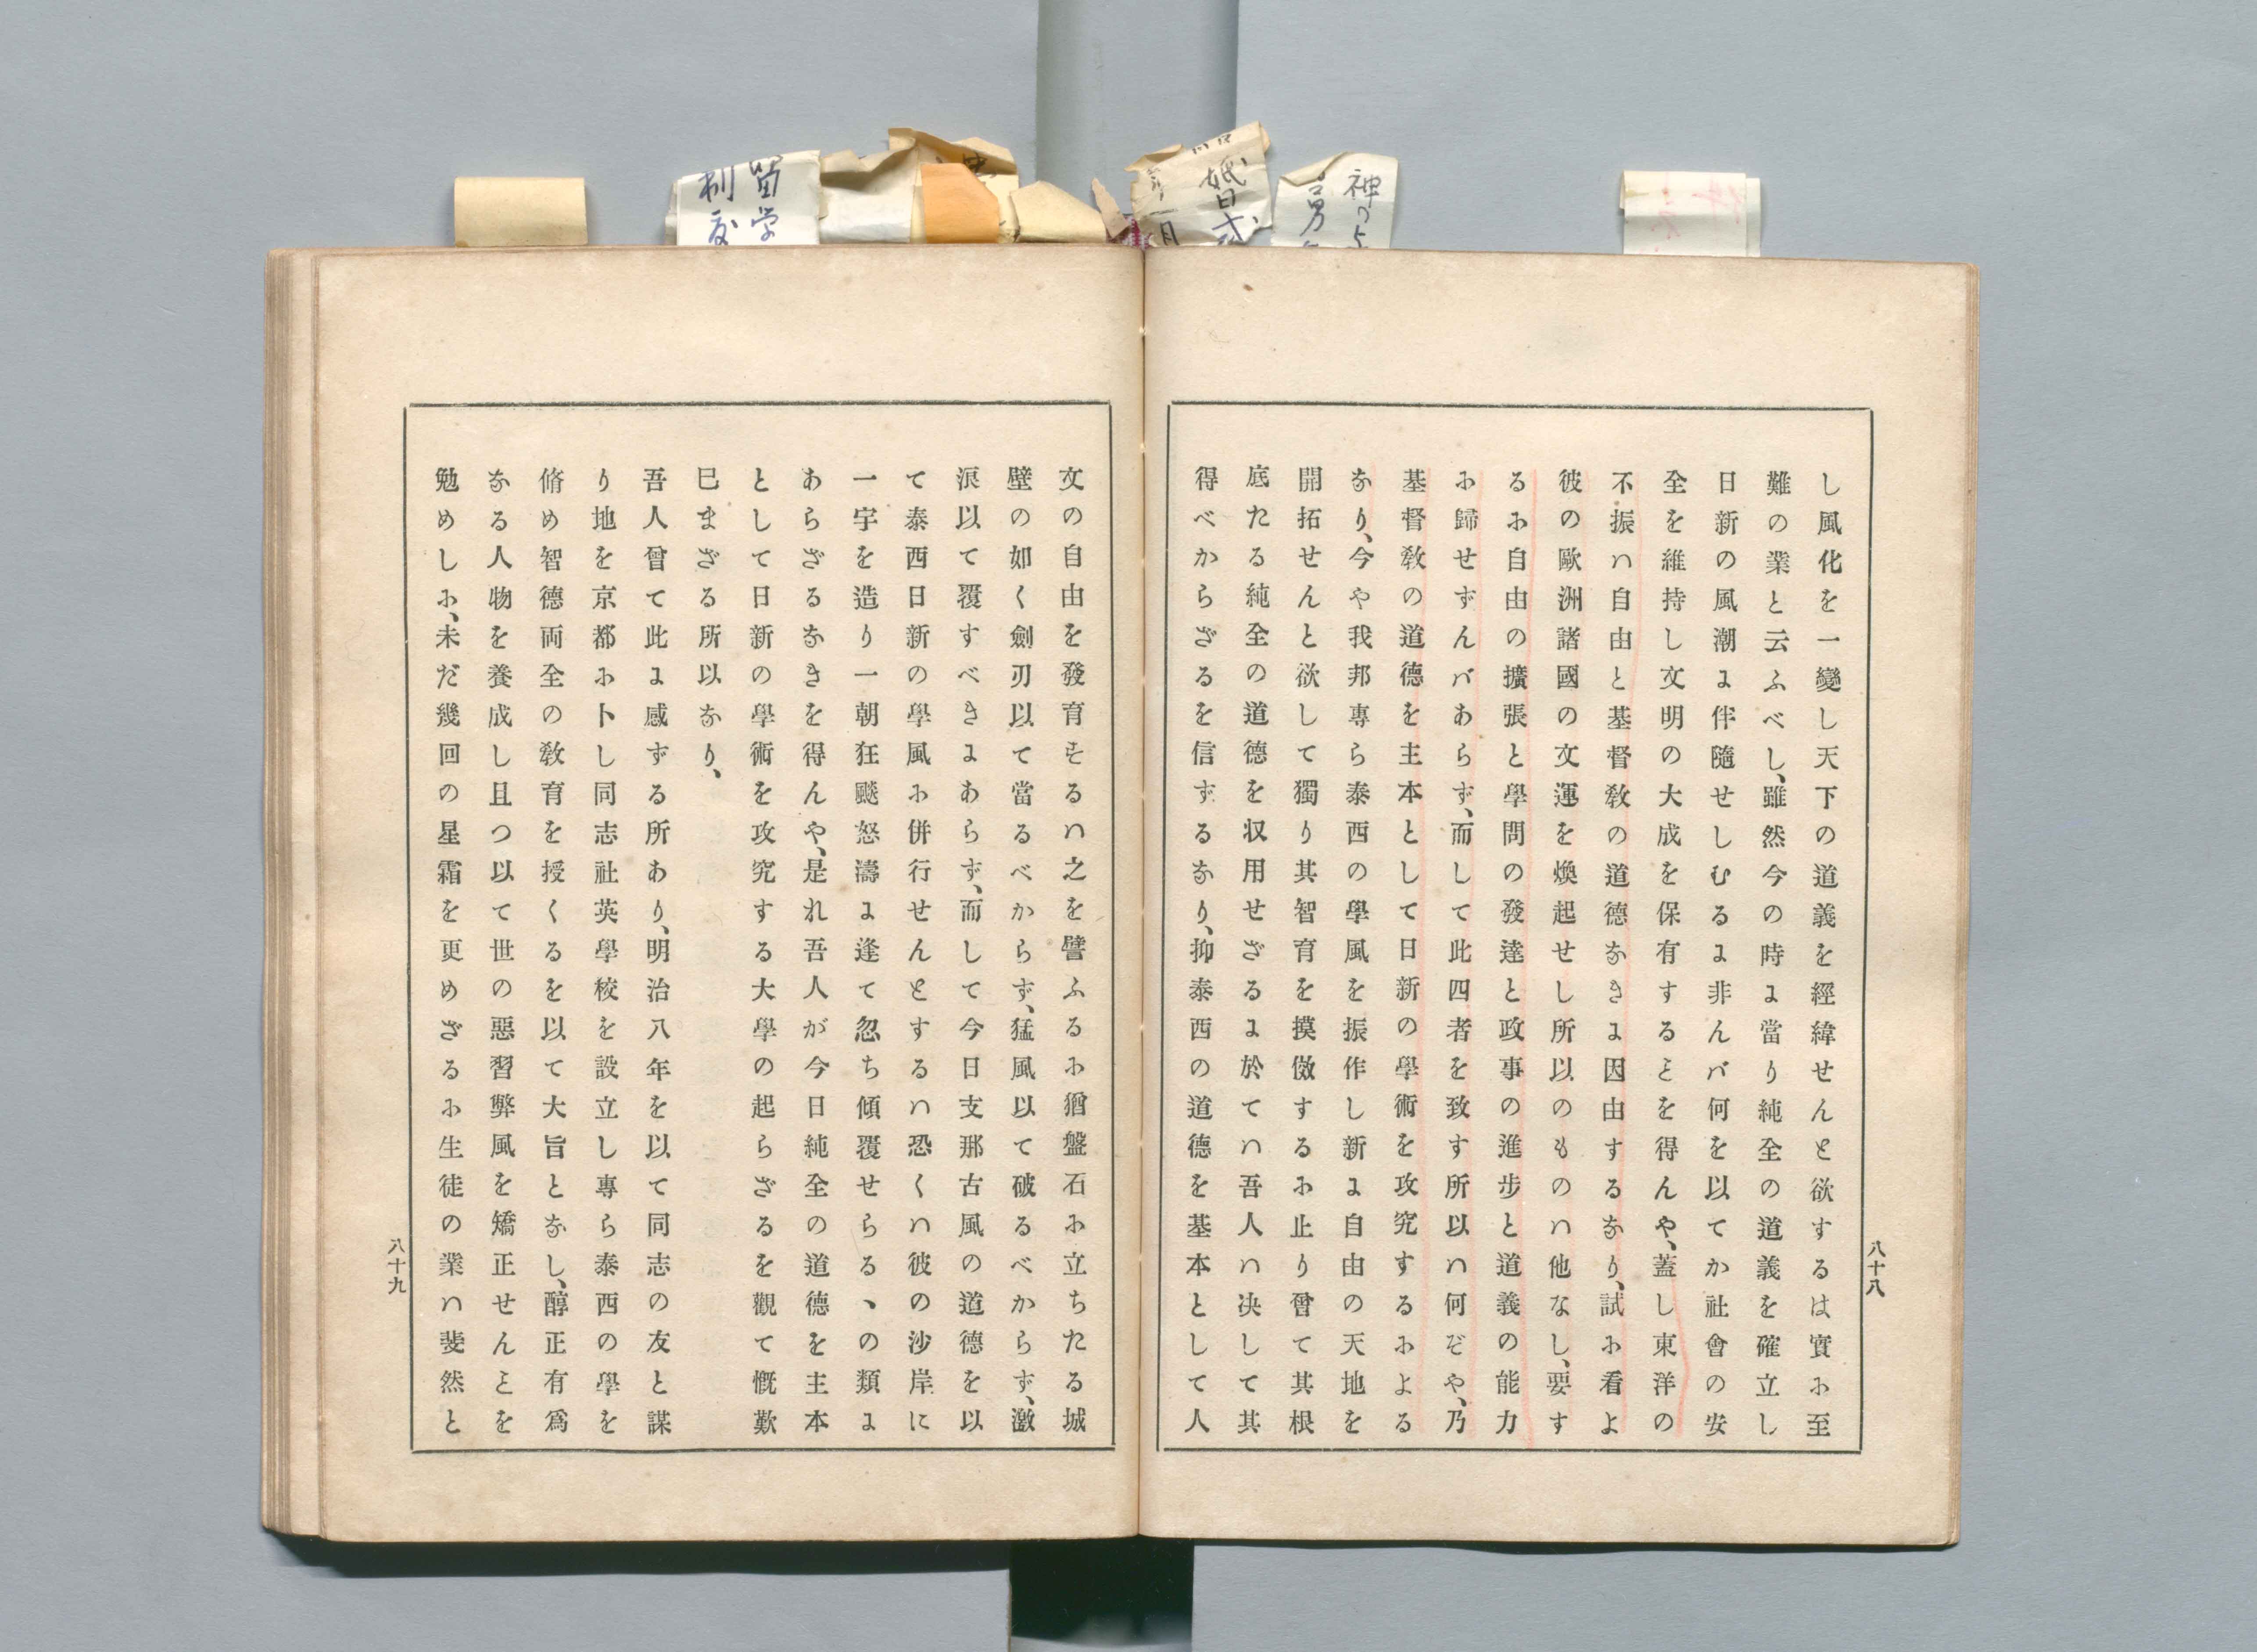 し風化を一變し天下の道義を經緯せんと欲するは實に至
難の業と云ふべし、雖然今の時に當り純全の道義を確立し
日新の風潮に伴隨せしむるに非んバ何を以てか社會の安
全を維持し文明の大成を保有するヿを得んや、蓋し東洋の
不振ハ自由と基督敎の道德なきに因由するなり、試に看よ
彼の歐洲諸國の文運を煥起せし所以のものハ他なし、要す
るに自由の擴張と學問の發達と政事の進步と道義の能力
に歸せずんバあらず、而して此四者を致す所以ハ何ぞや、乃
基督敎の道德を主本として日新の學術を攻究するによる
なり、今や我邦專ら泰西の學風を振作し新に自由の天地を
開拓せんと欲して獨り其智育を摸倣するに止り曾て其根
底たる純全の道德を収用せざるに於てハ吾人ハ决して其
得べからざるを信ずるなり、抑泰西の道德を基本として人
八十八
文の自由を發育するハ之を譬ふるに猶盤石に立ちたる城
壁の如く劍刃以て當るべからず、猛風以て破るべからず、激
浪以て覆すべきにあらず、而して今日支那古風の道德を以
て泰西日新の學風に併行せんとするハ恐くハ彼の沙岸に
一宇を造り一朝狂飈怒濤に逢て忽ち傾覆せらるヽの類に
あらざるなきを得んや、是れ吾人が今日純全の道德を主本
として日新の學術を攻究する大學の起らざるを觀て慨歎
已まざる所以なり、
吾人曾て此に感ずる所あり、明治八年を以て同志の友と謀
り地を京都に卜し同志社英學校を設立し專ら泰西の學を
脩め智德両全の敎育を授くるを以て大旨となし、醇正有爲
なる人物を養成し且つ以て世の惡習弊風を矯正せんヿを
勉めしに、未だ幾回の星霜を更めざるに生徒の業ハ斐然と
八十九
留学
制度
婚式
神の